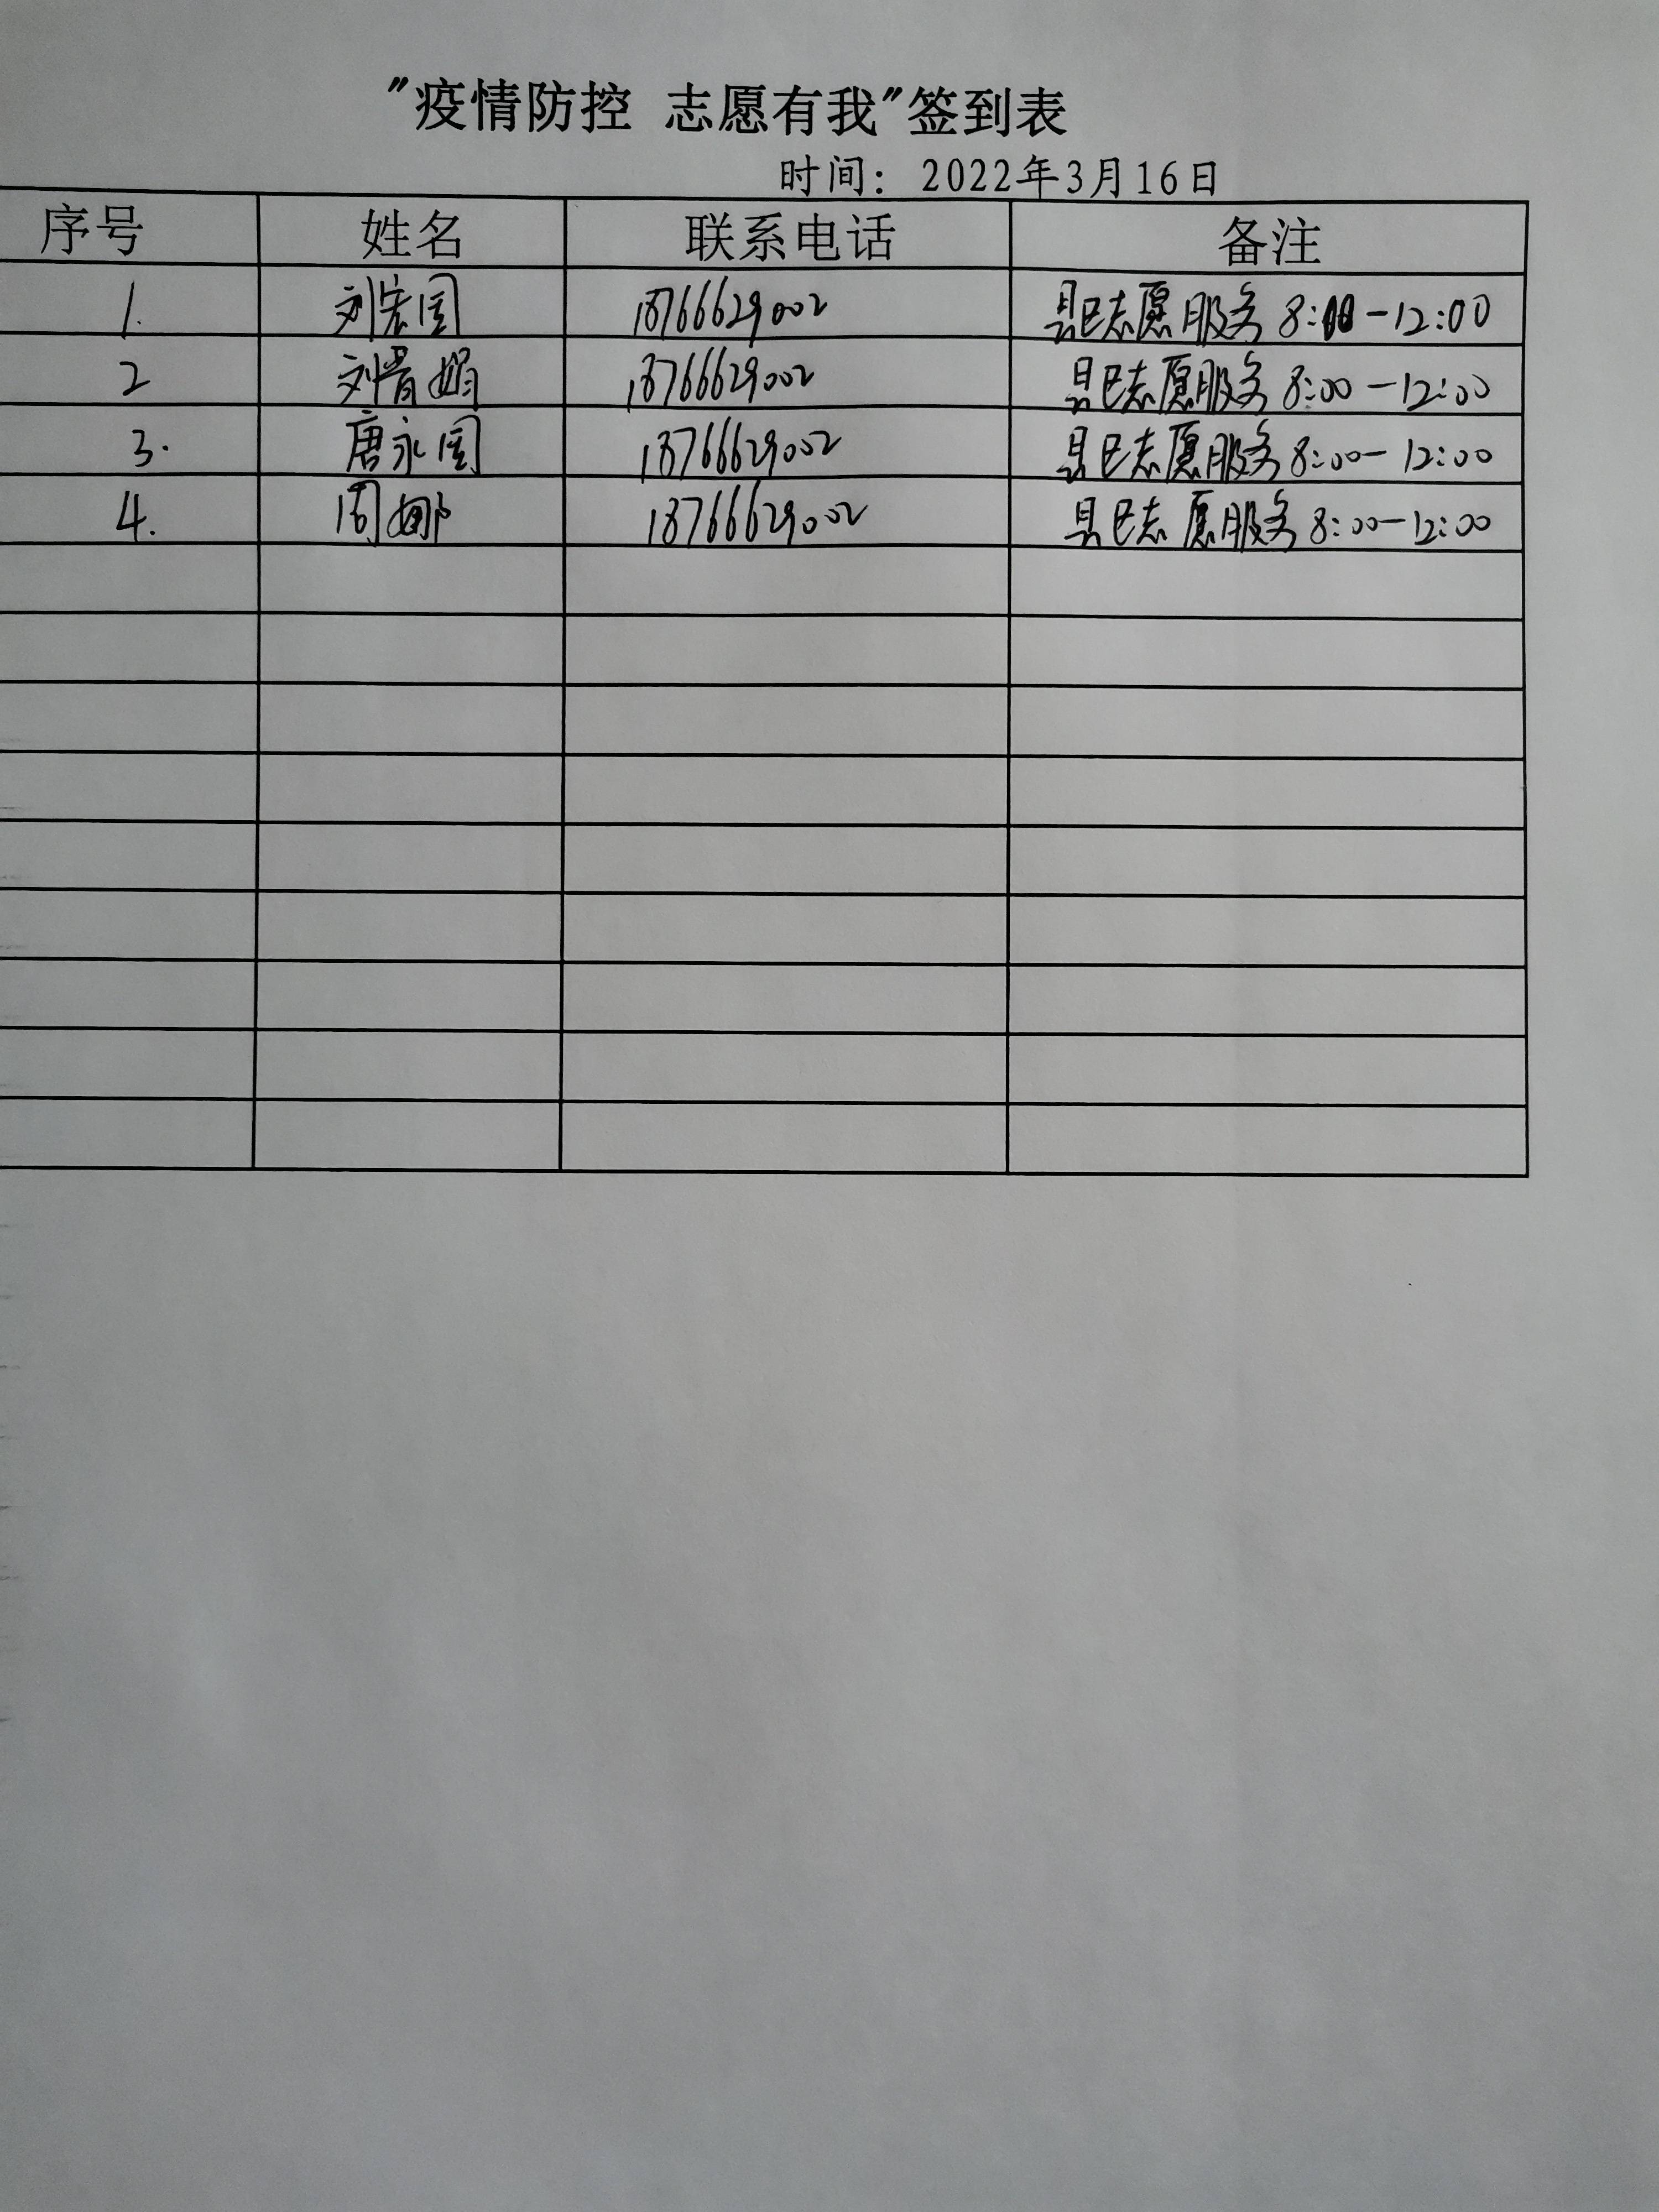 "疫情防控 志愿有我"签到表
时间：2022年3月16日
序号 姓名 联系电话 备注
1. 刘宏国 18766629002 县巴志愿服务 8:00-12:00
2 刘青娟 18766629002 县巴志愿服务 8:00-12:00
3. 唐永国 18766629002 县巴志愿服务 8:00-12:00
4. 周娜 18766629002 县巴志愿服务 8:00-12:00